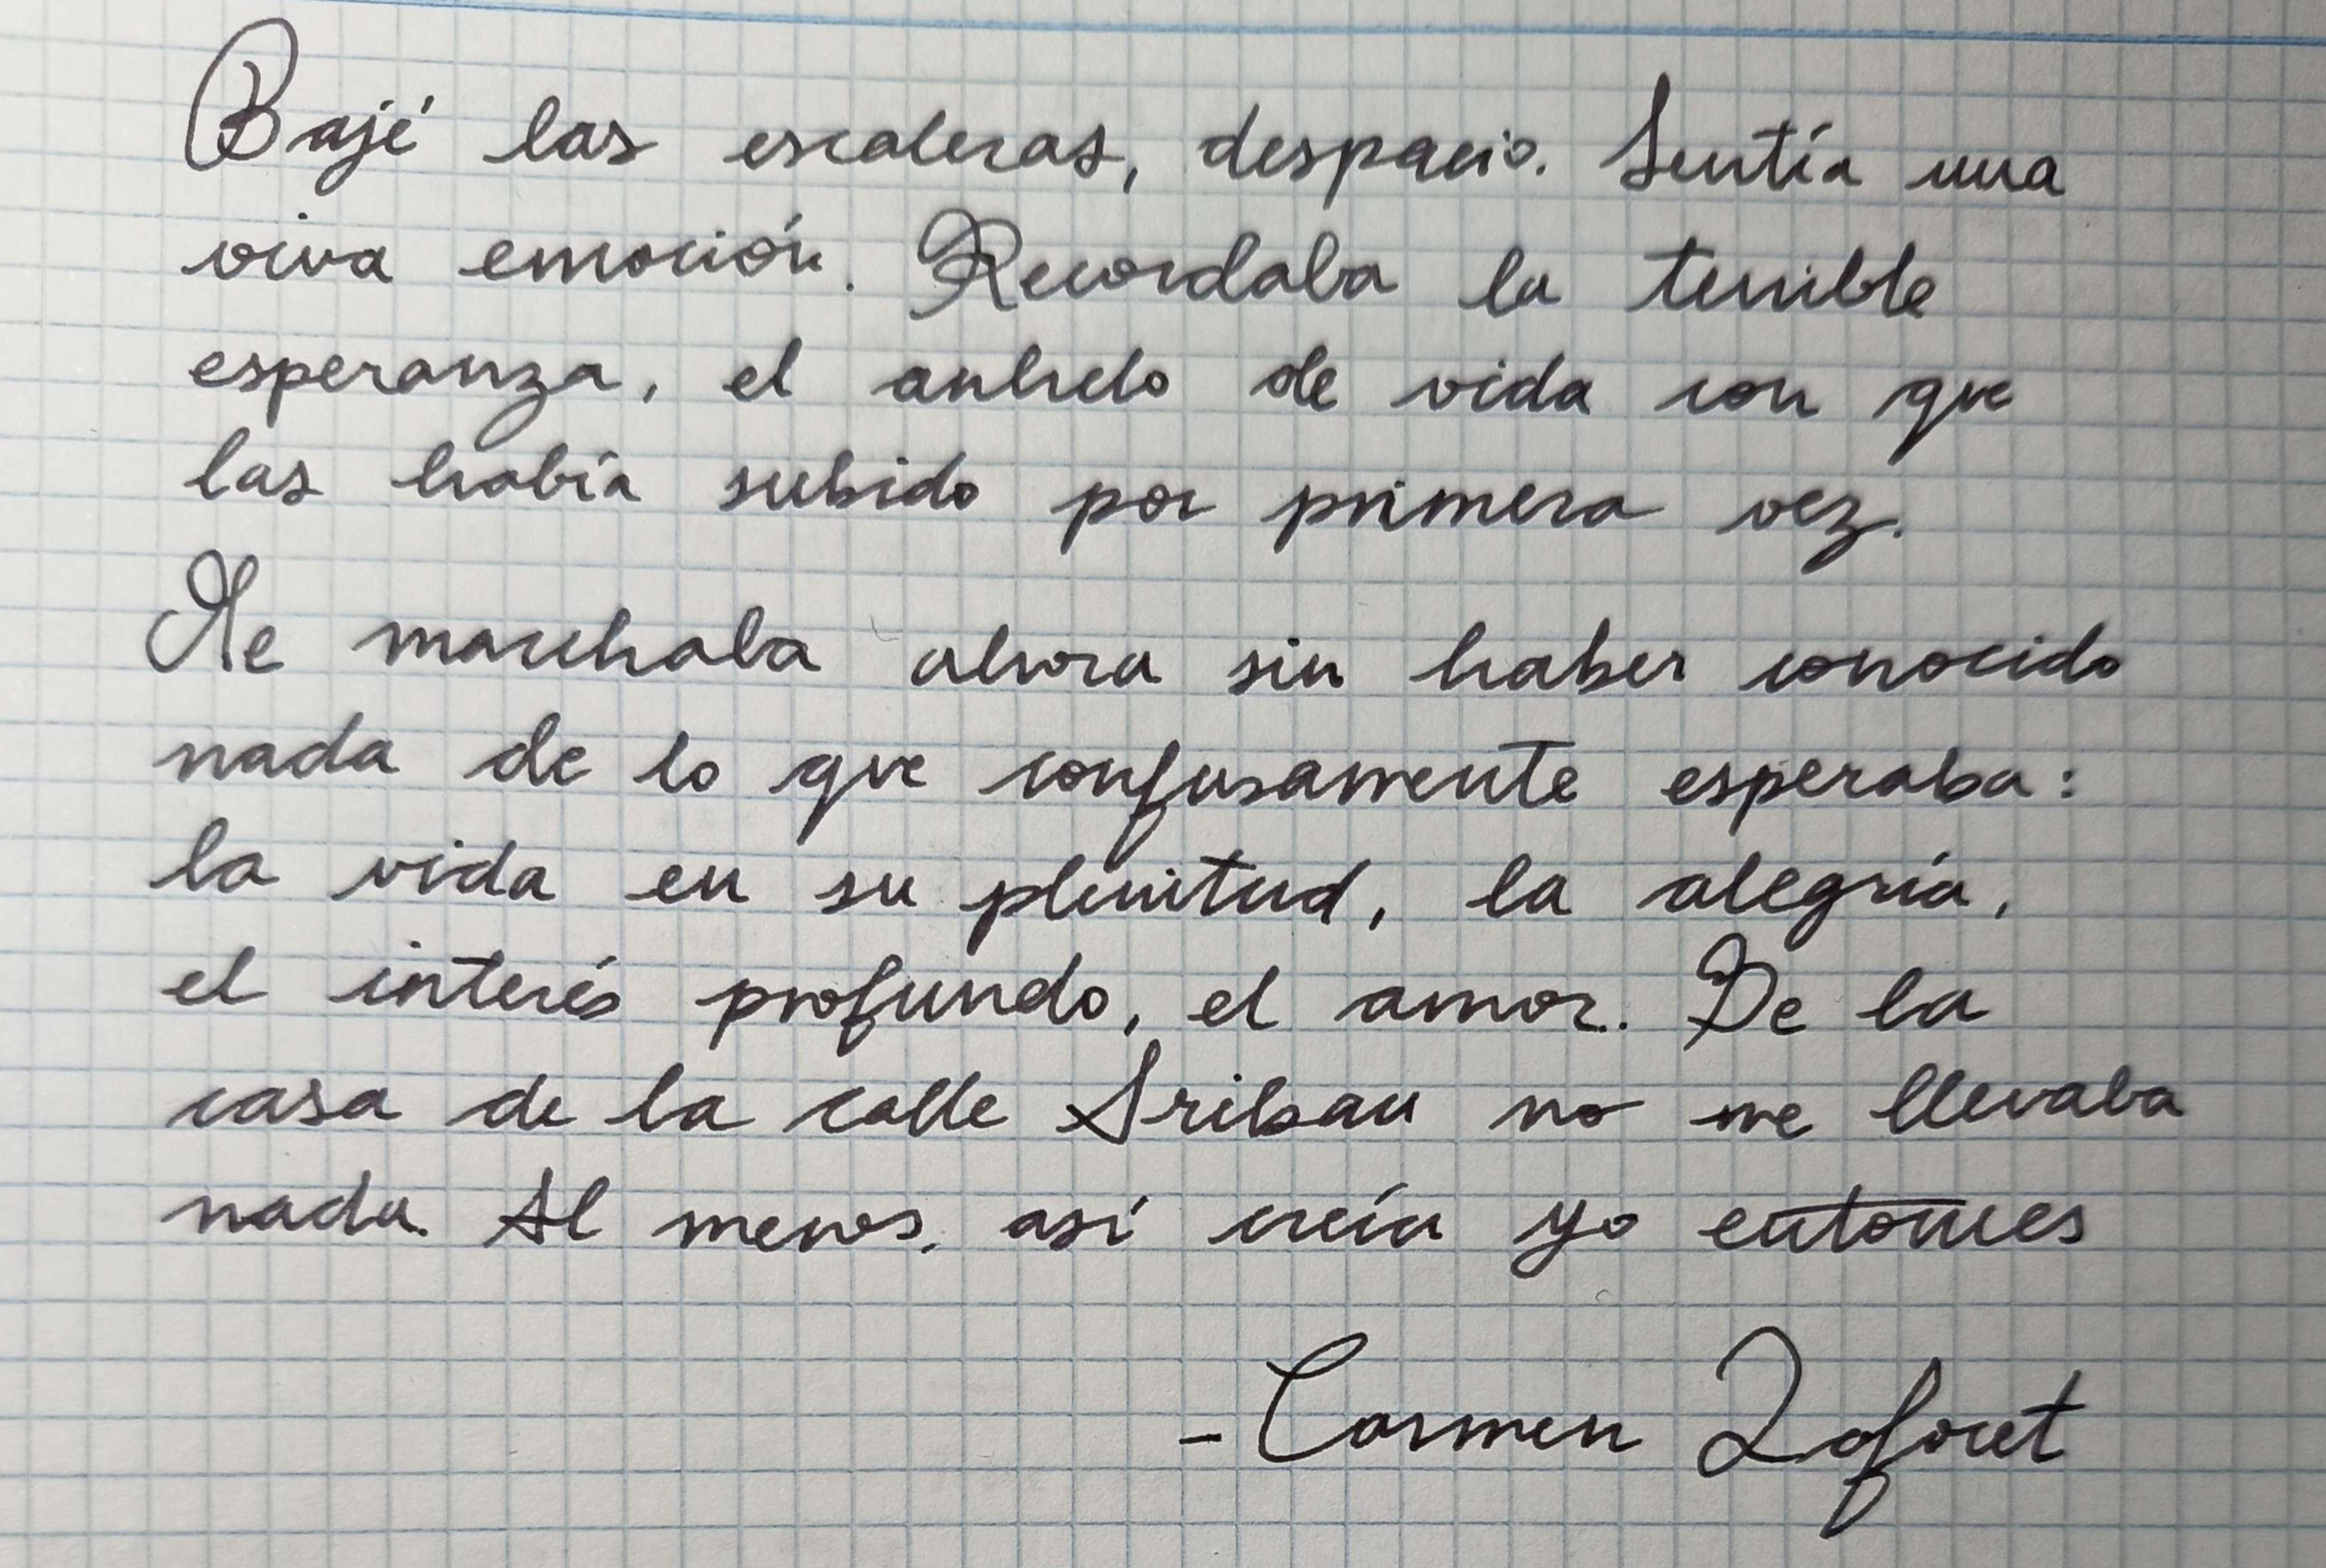 Bajé las escaleras, despacio. Sentía una
viva emoción. Recordaba la terrible
esperanza, el anhelo de vida con que
las había subido por primera vez.
Me marchaba ahora sin haber conocido
nada de lo que confusamente esperaba:
la vida en su plenitud, la alegría,
el interés profundo, el amor. De la
casa de la calle Aribau no me llevaba
nada. Al menos, así creía yo entonces
- Carmen Laforet